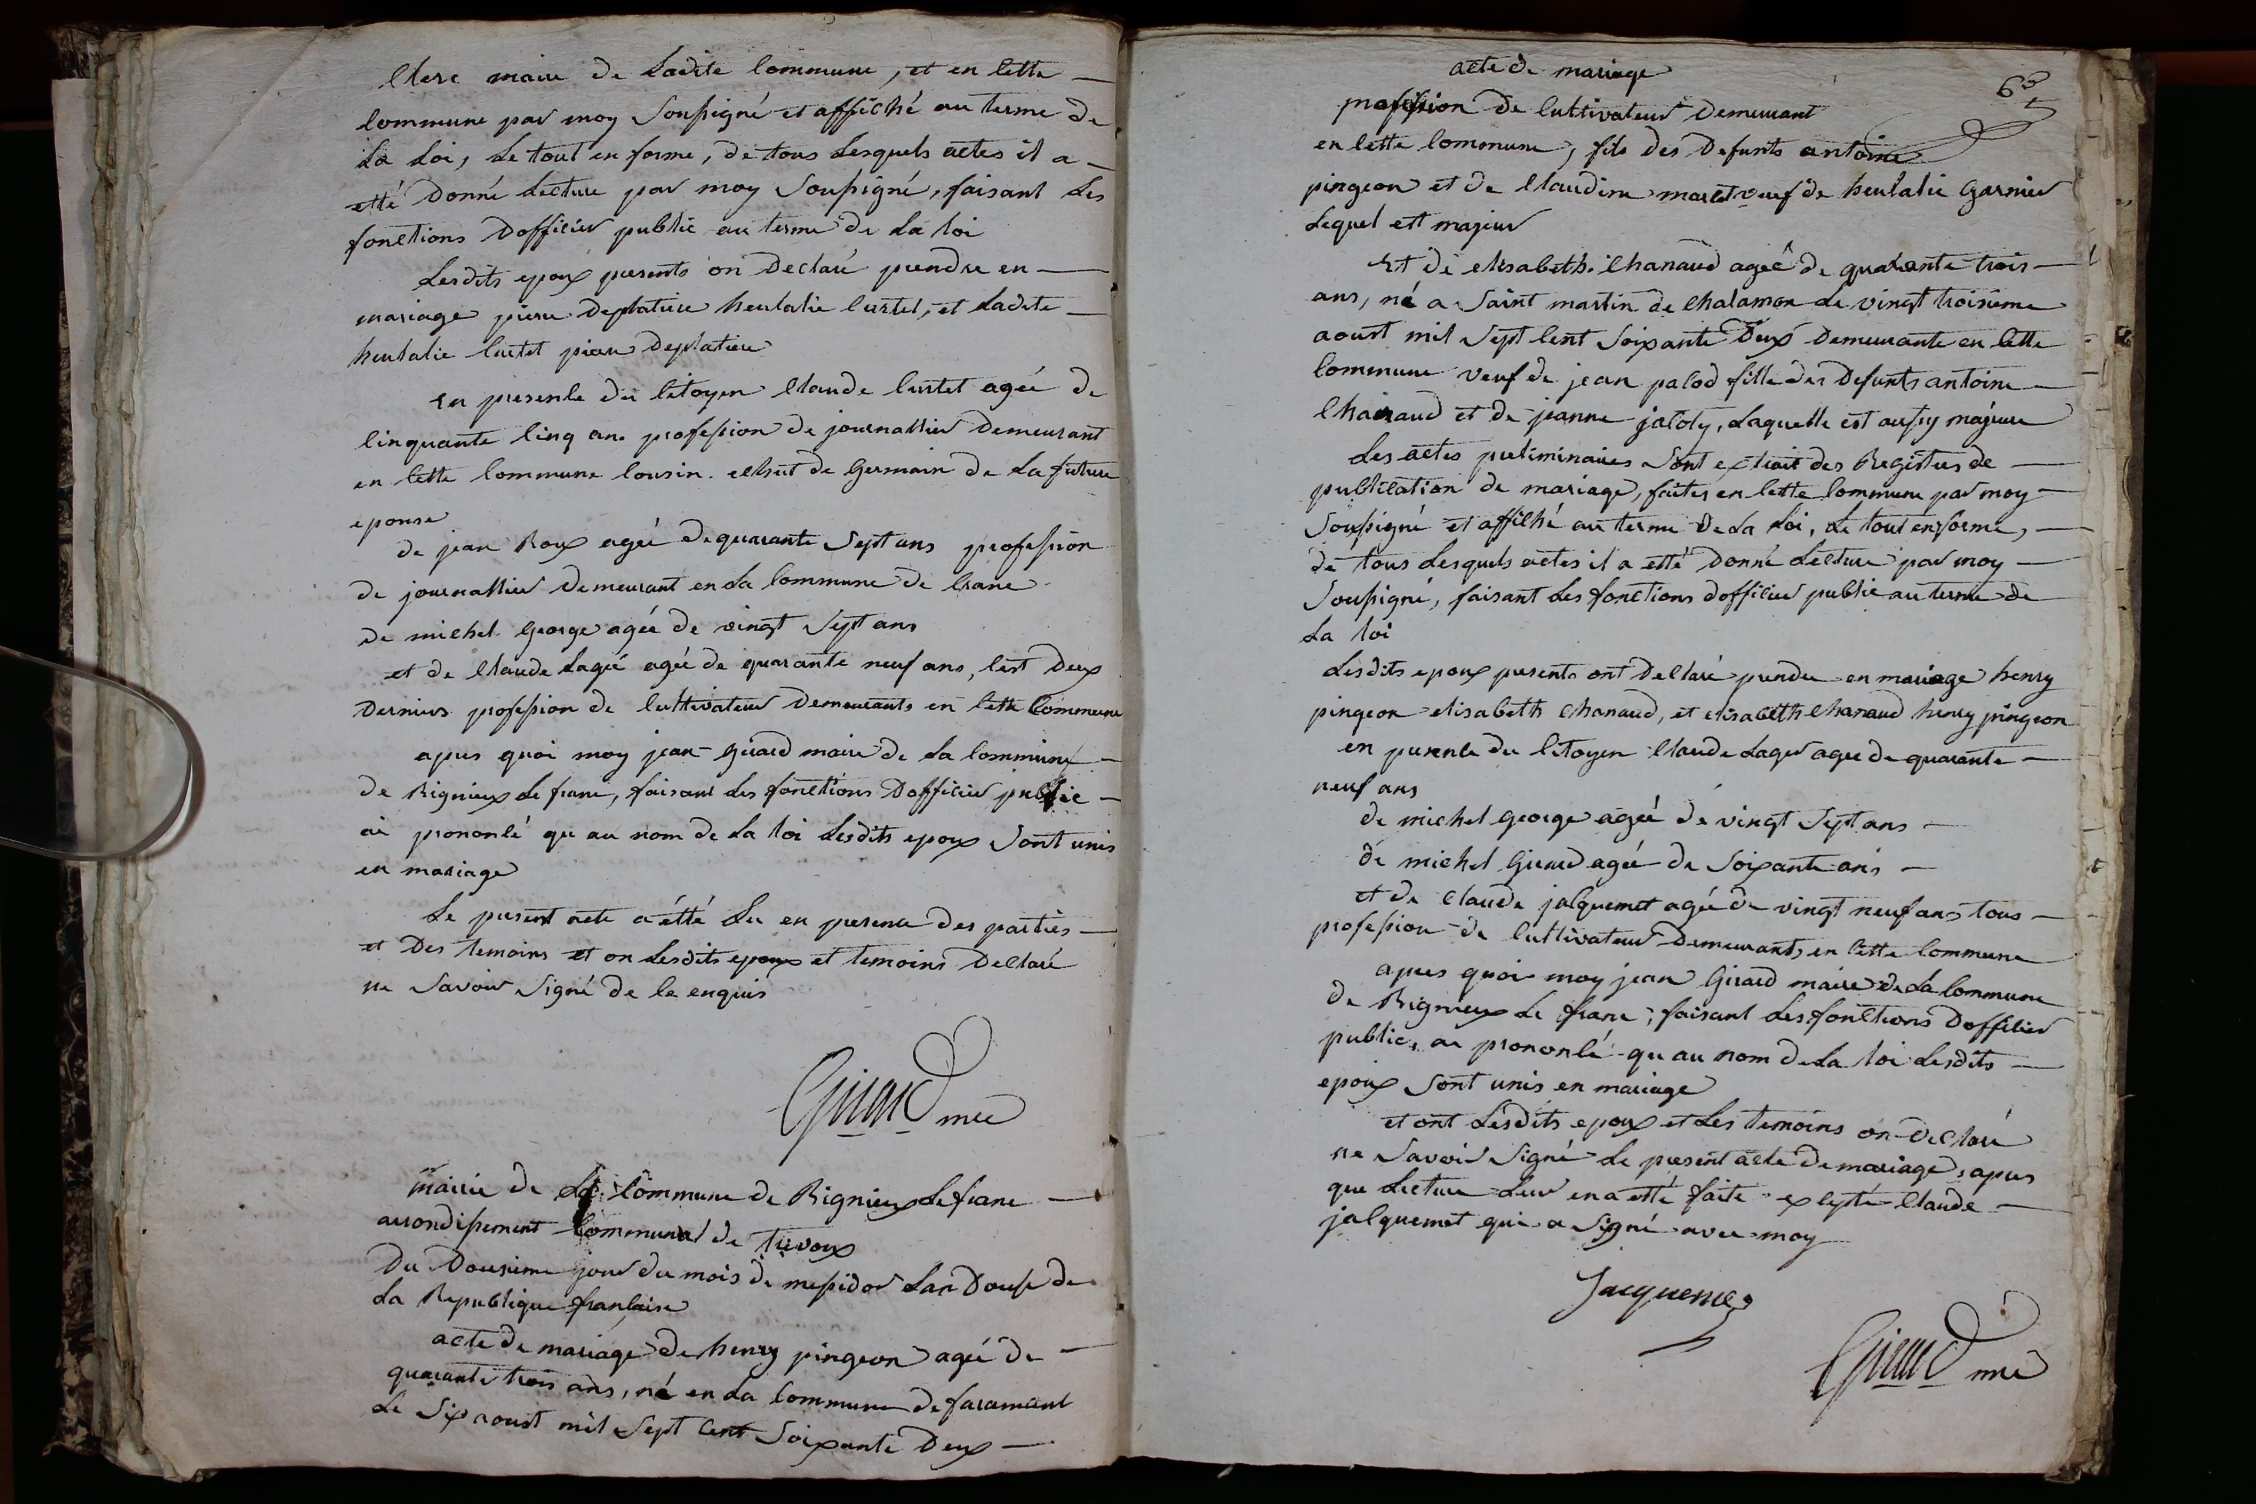 Clerc maire de Ladite Commune, et en Cette
Commune par moy Soussigné et affiché au terme de
La Loi, Le tout en forme, de tous Lesquels actes il a
etté Donné Lecture par moy Soussigné, faisant Les
fonctions Dofficier public au terme de La Loi
Lesdits epoux presents on Declaré prendre en
mariage pierre Deplatiere heulalie Curtet, et Ladite
heulalie Curtet pierre Deplatiere
En presence du Citoyen Claude Curtet agée de
Cinquante Cinq an profession de journallier Demeurant
en Cette Commune Cousin de Germain de La future
epouse
de jean Roux agée de quarante Sept ans profession
de journallier Demeurant en La Commune de Crane
de michel George agée de vingt Sept ans
et de Claude Lagée agée de quarante neuf ans, Cest Deux
Derniers profession de Cultivateur Demeurants en Cette Commune
apres quoi moy jean Girard maire de La Commune
de Rignieux Le franc, faisant Les fonctions Dofficier public
ai prononcé qu au nom de La Loi Lesdits epoux Sont unis
en mariage
Le present acte a étté Lu en presence des parties
et Des temoins et on Lesdits epoux et temoins Declaré
ne Savoir Signé de Ce enquis
Girard mre
Mairie de La Commune de Rignieux Le franc
arrondissement Communal de Trevoux
Du Dousieme jour du mois de messidor Lan Douse de
La Republique francaise
acte de mariage de henry pingeon agée de
quarante trois ans, né en La Commune de faramant
Le Six aoust mil Sept Cent Soixante Deux
acte de mariage
63
profession de Cultivateur Demeurant
en Cette Commune, fils des Defunts antoine
pingeon et de Claudine maret veuf de heulalie Garnier
Lequel est majeur
Et de elisabeth Chanaud agée de quarante trois
ans, né a Saint martin de Chalamon Le vingt troisieme
aoust mil Sept Cent Soixante Deux Demeurante en Cette
Commune veuf de jean palod fille des Defunts antoine
Chanaud et de jeanne jacoty, Laquelle est aussy majeure
Les actes preliminaires Sont extrait des Registres de
publication de mariage, faites en Cette Commune par moy
Soussigné et affiché au terme de La Loi, Le tout en forme,
de tous Lesquels actes il a etté Donné Lecture par moy
Soussigné, faisant Les fonctions dofficier public au terme de
La Loi
Lesdits epoux presents ont Declaré prendre en mariage henry
pingeon elisabeth Chanaud, et elisabeth Chanaud henry pingeon
en presence du Citoyen Claude Lager agée de quarante
neuf ans
de michel George agée de vingt Sept ans
de michel Girard agée de Soixante ans
et de Claude jacquemet agée de vingt neuf ans tous
profession de Cultivateur Demeurants en Cette Commune
apres quoi moy jean Girard maire de La Commune
de Rignieux Le franc, faisant Les fonctions Dofficier
public, ai prononcé qu au nom de La Loi Lesdits
epoux Sont unis en mariage
et ont Lesdits epoux et Les temoins on Declaré
ne Savoir Signé Le present acte de mariage, apres
que Lecture Leur en a etté faite excepté Claude
jacquemet qui a Signé avec moy
Jacquemet
Girard mre